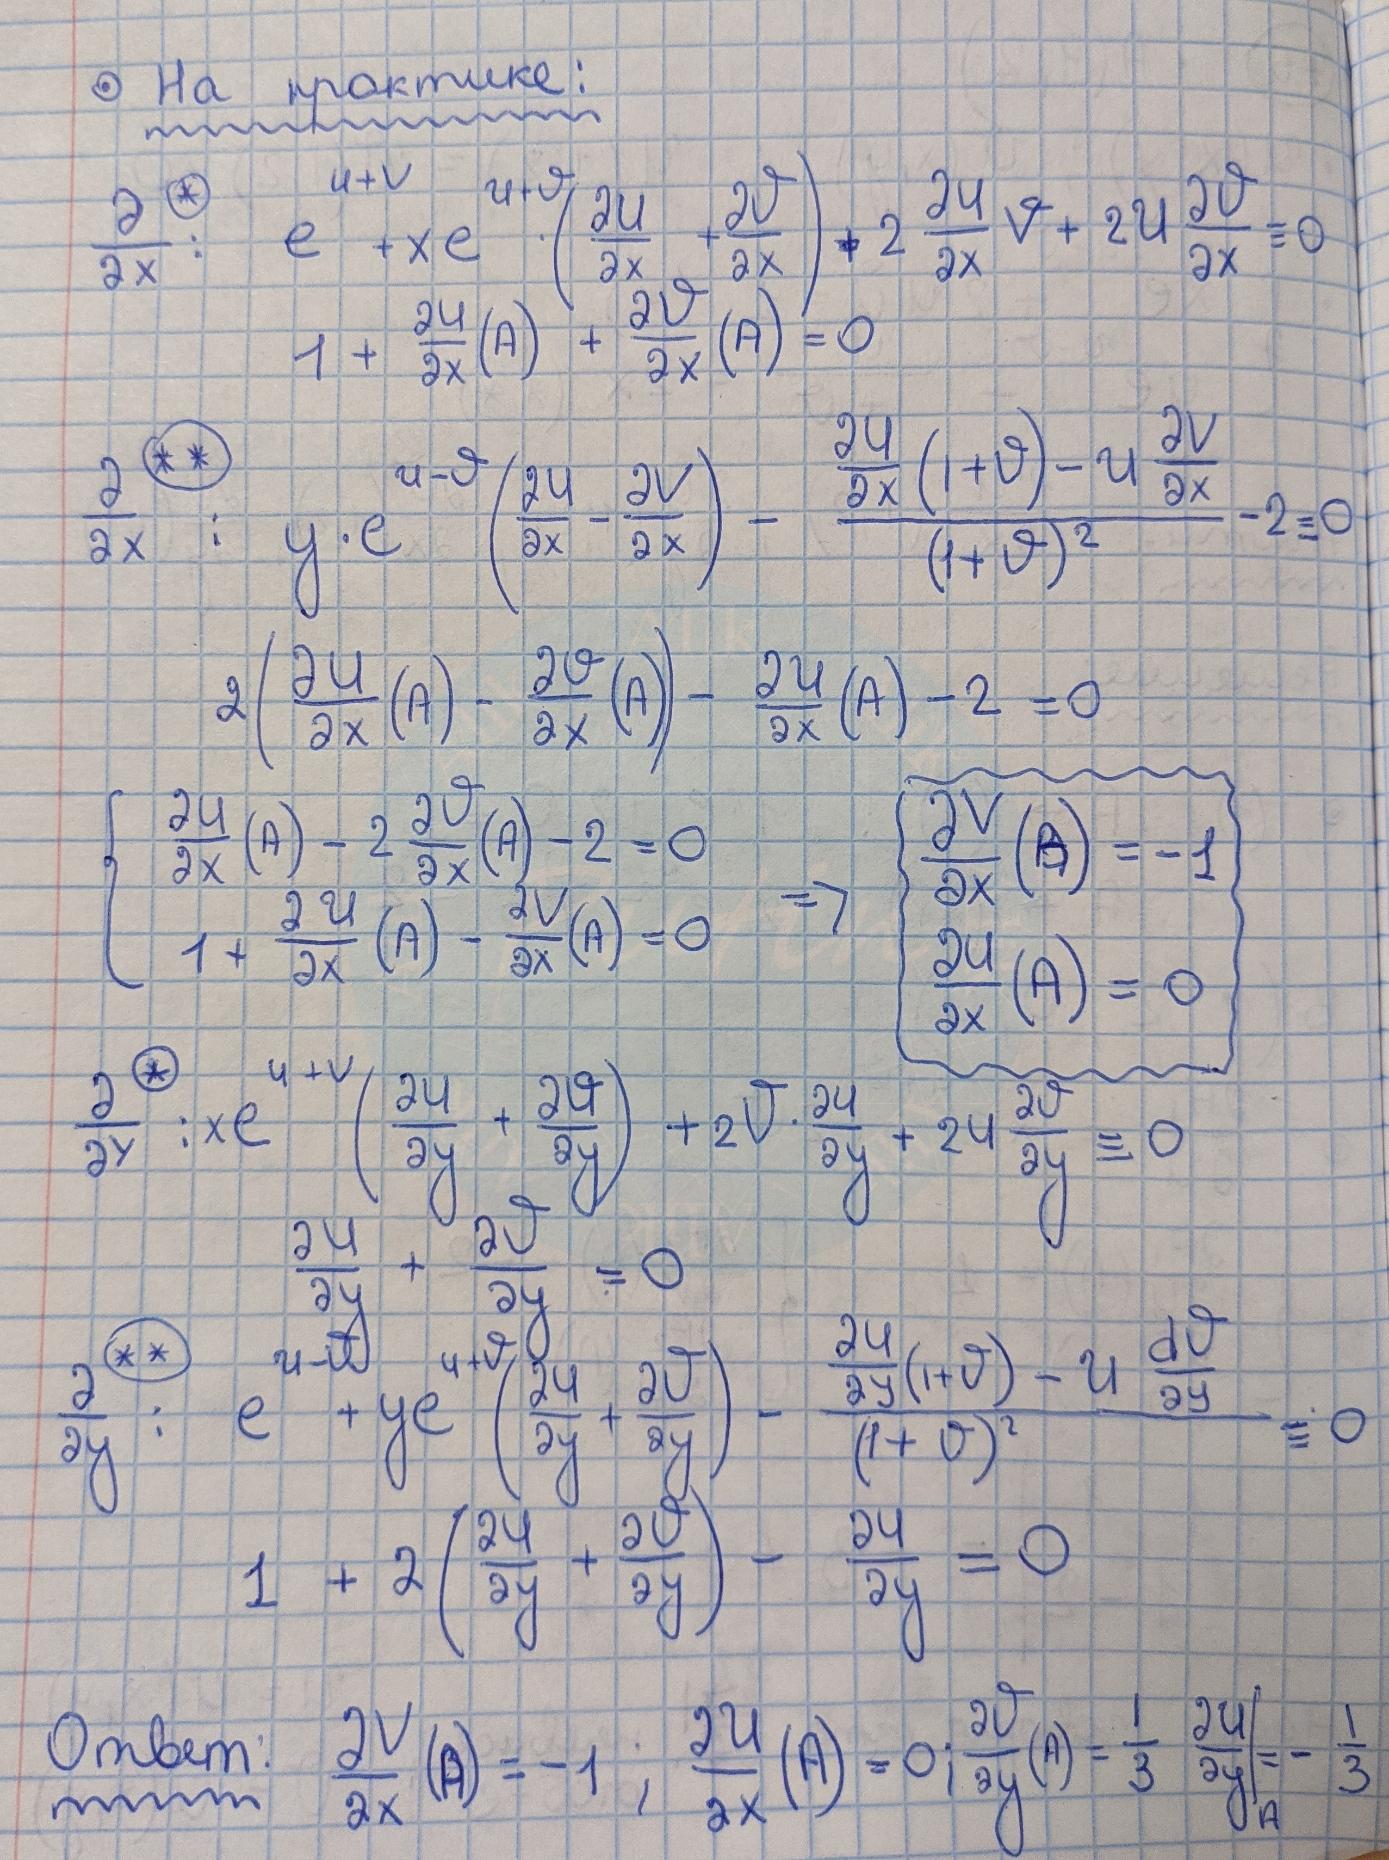 ⊙ На практике:
∂/∂x (*) : e^{u+v} + xe^{u+v} · (∂u/∂x + ∂v/∂x) + 2 ∂u/∂x v + 2u ∂v/∂x ≡ 0
1 + ∂u/∂x (A) + ∂v/∂x (A) = 0
∂/∂x (**) : y · e^{u-v} (∂u/∂x - ∂v/∂x) - (∂u/∂x (1+v) - u ∂v/∂x)/(1+v)^2 - 2 ≡ 0
2(∂u/∂x (A) - ∂v/∂x (A)) - ∂u/∂x (A) - 2 = 0
{ ∂u/∂x (A) - 2 ∂v/∂x (A) - 2 = 0
1 + ∂u/∂x (A) - ∂v/∂x (A) = 0 => { ∂v/∂x (A) = -1
∂u/∂x (A) = 0
∂/∂y (*) : xe^{u+v} (∂u/∂y + ∂v/∂y) + 2v · ∂u/∂y + 2u ∂v/∂y ≡ 0
∂u/∂y + ∂v/∂y = 0
∂/∂y (**) : e^{u-v} + ye^{u+v} (∂u/∂y + ∂v/∂y) - (∂u/∂y (1+v) - u dv/∂y)/(1+v)^2 ≡ 0
1 + 2(∂u/∂y + ∂v/∂y) - ∂u/∂y = 0
Ответ: ∂v/∂x (A) = -1; ∂u/∂x (A) = 0; ∂v/∂y (A) = 1/3 ∂u/∂y|_A = - 1/3